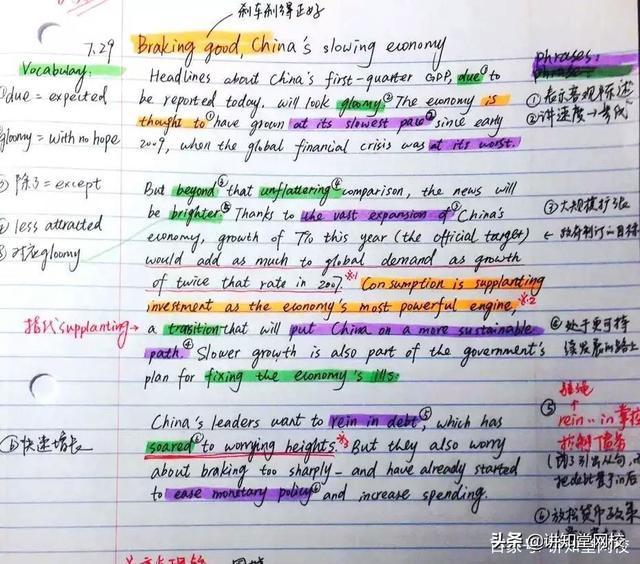 刹车刹得正好
7.29 Braking good, China's slowing economy
Vocabulary:
phrases:
Headlines about China's first-quarter GDP, due① to
①due = expected
be reported today, will look gloomy② The economy is
gloomy = with no hope
thought to① have grown at its slowest pace② since early
2009, when the global financial crisis was at its worst.
But beyond③ that unflattering④ comparison, the news will
除了 = except
be brighter.⑤ Thanks to the vast expansion of③ China's
③大规模扩张
④ less attracted
economy, growth of 7% this year (the official target)
对应gloomy
would add as much to global demand as growth
of twice that rate in 2007.※1 Consumption is supplanting
investment as the economy's most powerful engine,※2
指代supplanting
a transition that will put China on a more sustainable
④处于更可持
path.④ Slower growth is also part of the government's
续发展的路上
plan for fixing the economy's ills.
China's leaders want to rein in debt,⑤ which has
⑤
rein...in 掌控
⑥快速增长
soared⑥ to worrying heights.※3 But they also worry
about braking too sharply – and have already started
to ease monetary policy⑥ and increase spending.
⑥放松货币政策
头条 @讲知堂网校
百家号/讲知堂网校